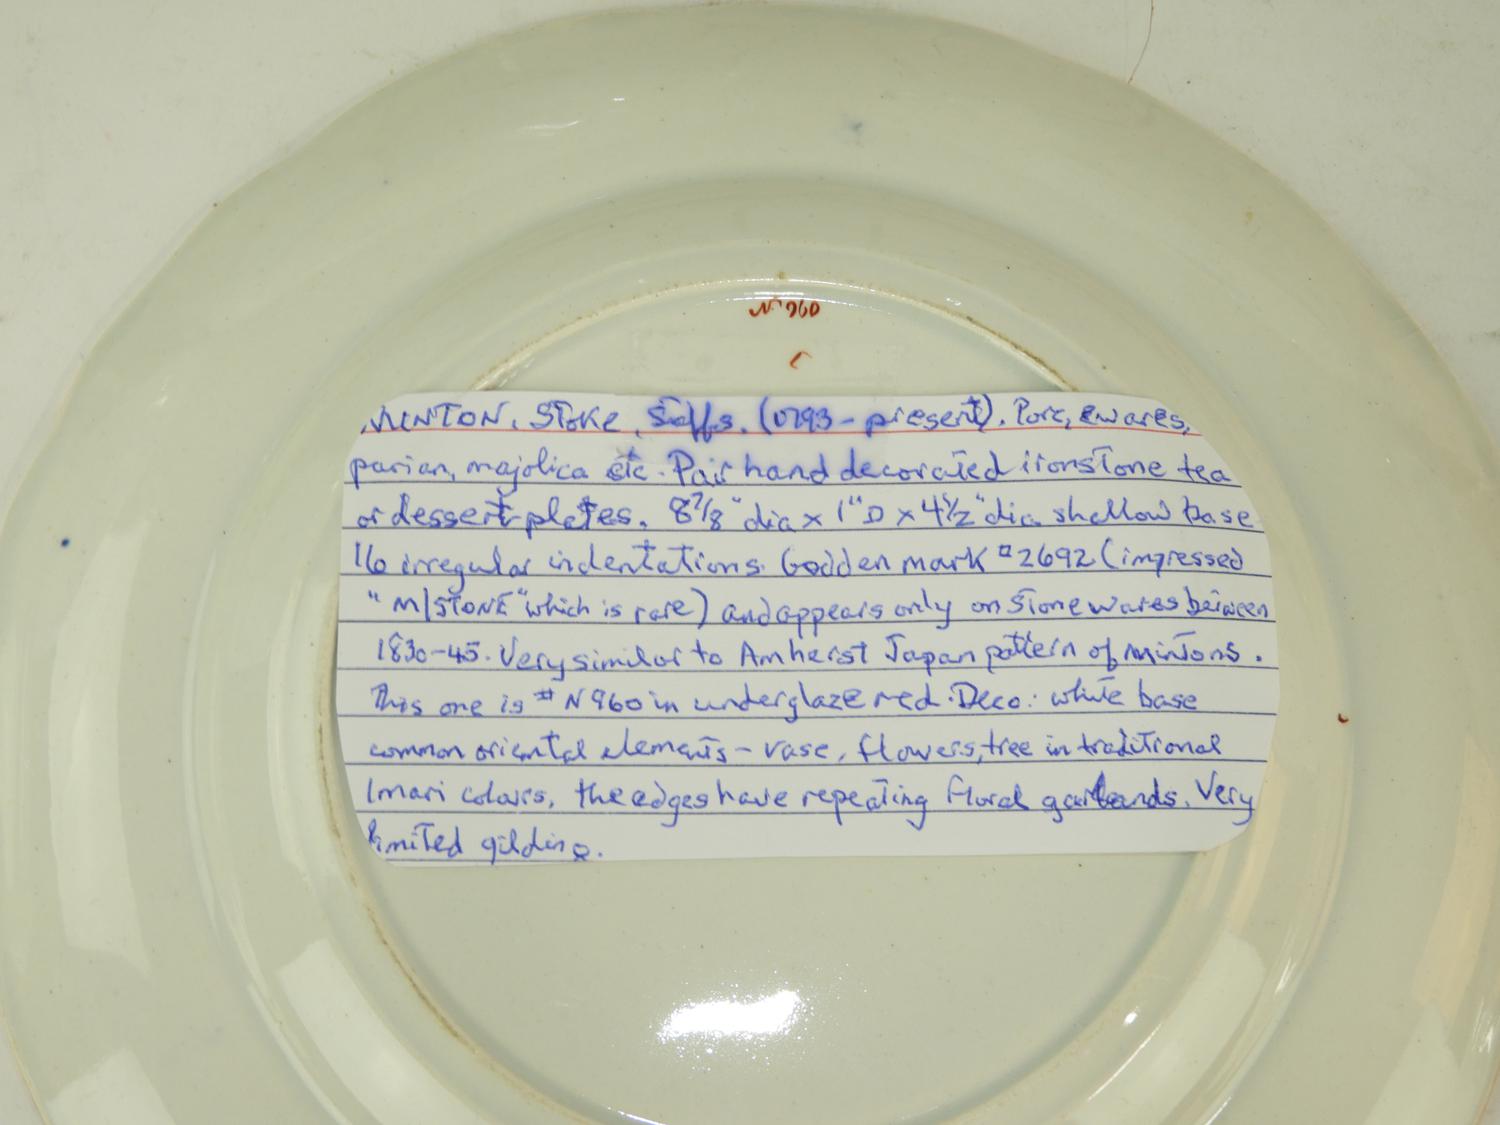 No 960
MINTON, Stoke, Staffs. (1793 - present). Porc, ewares,
parian, majolica etc. Pair hand decorated ironstone tea
or dessert plates. 8 7/8" dia x 1" D x 4 1/2" dia shallow base
16 irregular indentations. Godden mark #2692 (impressed
"M/STONE" which is rare) and appears only on stonewares between
1830-45. Very similar to Amherst Japan pattern of Mintons.
This one is # N960 in underglaze red. Deco: white base
common oriental elements - vase, flowers, tree in traditional
Imari colours, the edges have repeating floral garlands. Very
limited gilding.